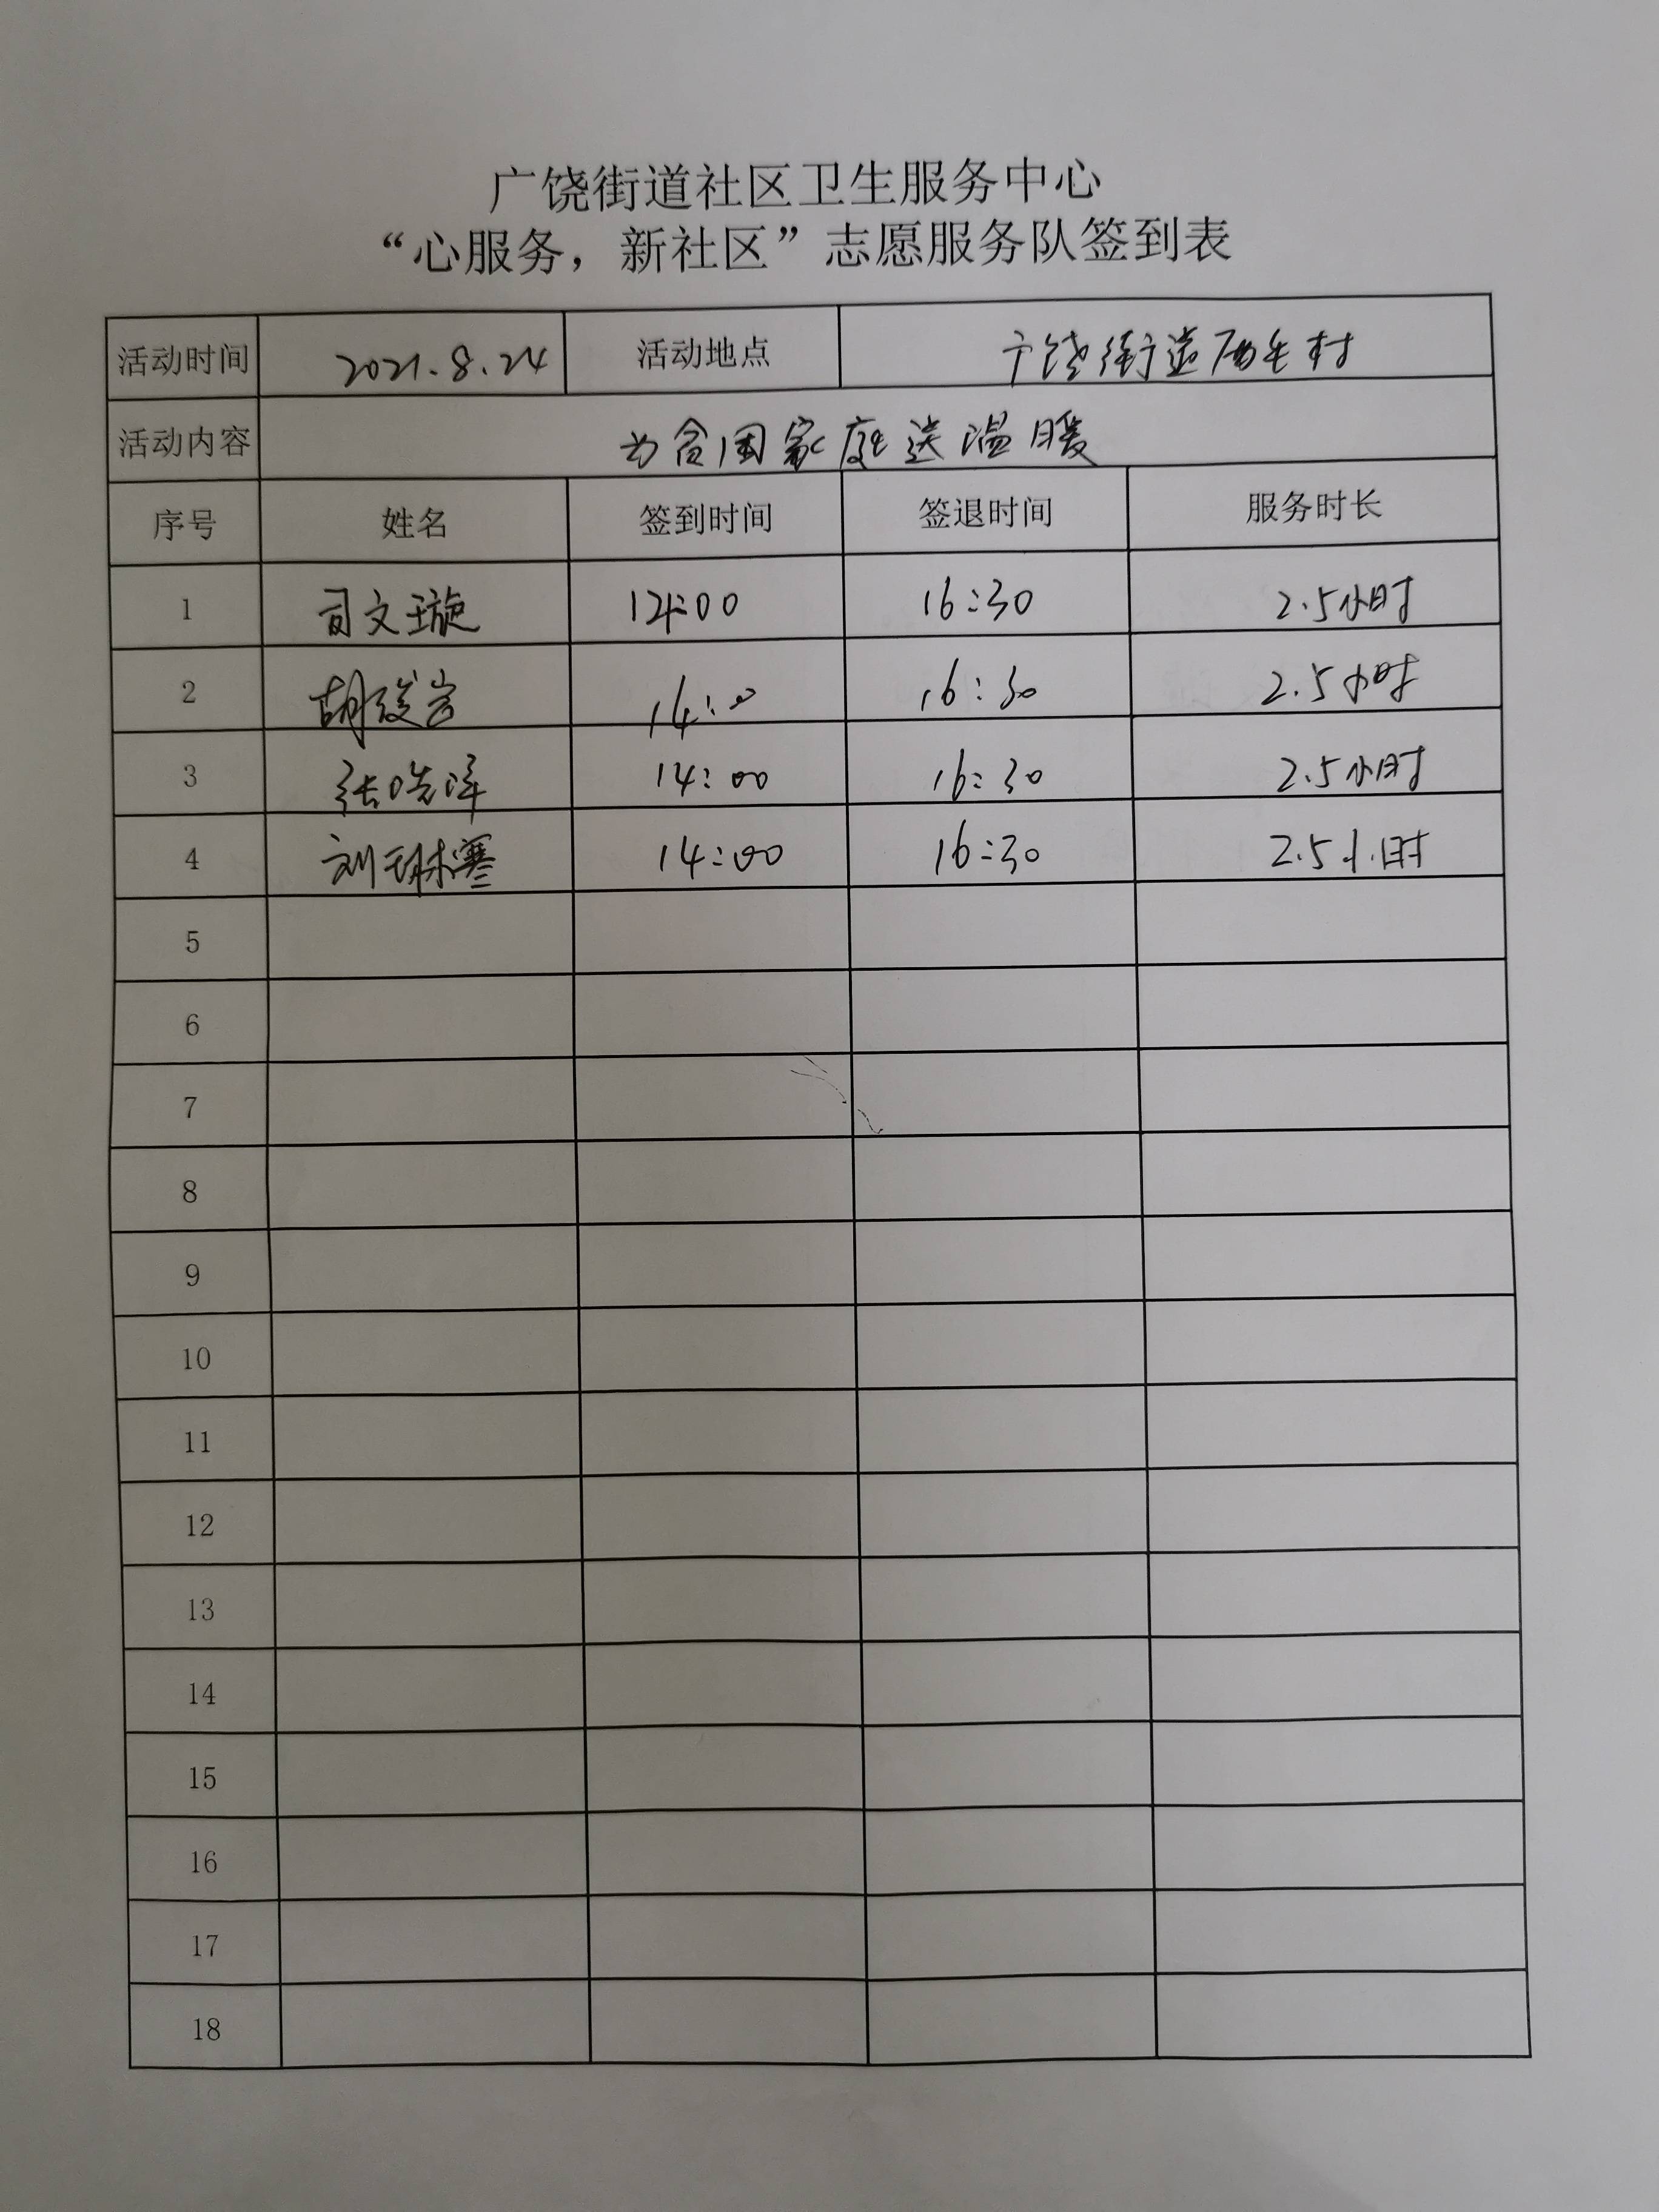 广饶街道社区卫生服务中心
“心服务，新社区”志愿服务队签到表
活动时间 2021.8.24 活动地点 广饶街道 村
活动内容 为贫困家庭送温暖
序号 姓名 签到时间 签退时间 服务时长
1 司文璇 14:00 16:30 2.5小时
2 胡 14:00 16:30 2.5小时
3 张 14:00 16:30 2.5小时
4 刘琳 14:00 16:30 2.5小时
5
6
7
8
9
10
11
12
13
14
15
16
17
18